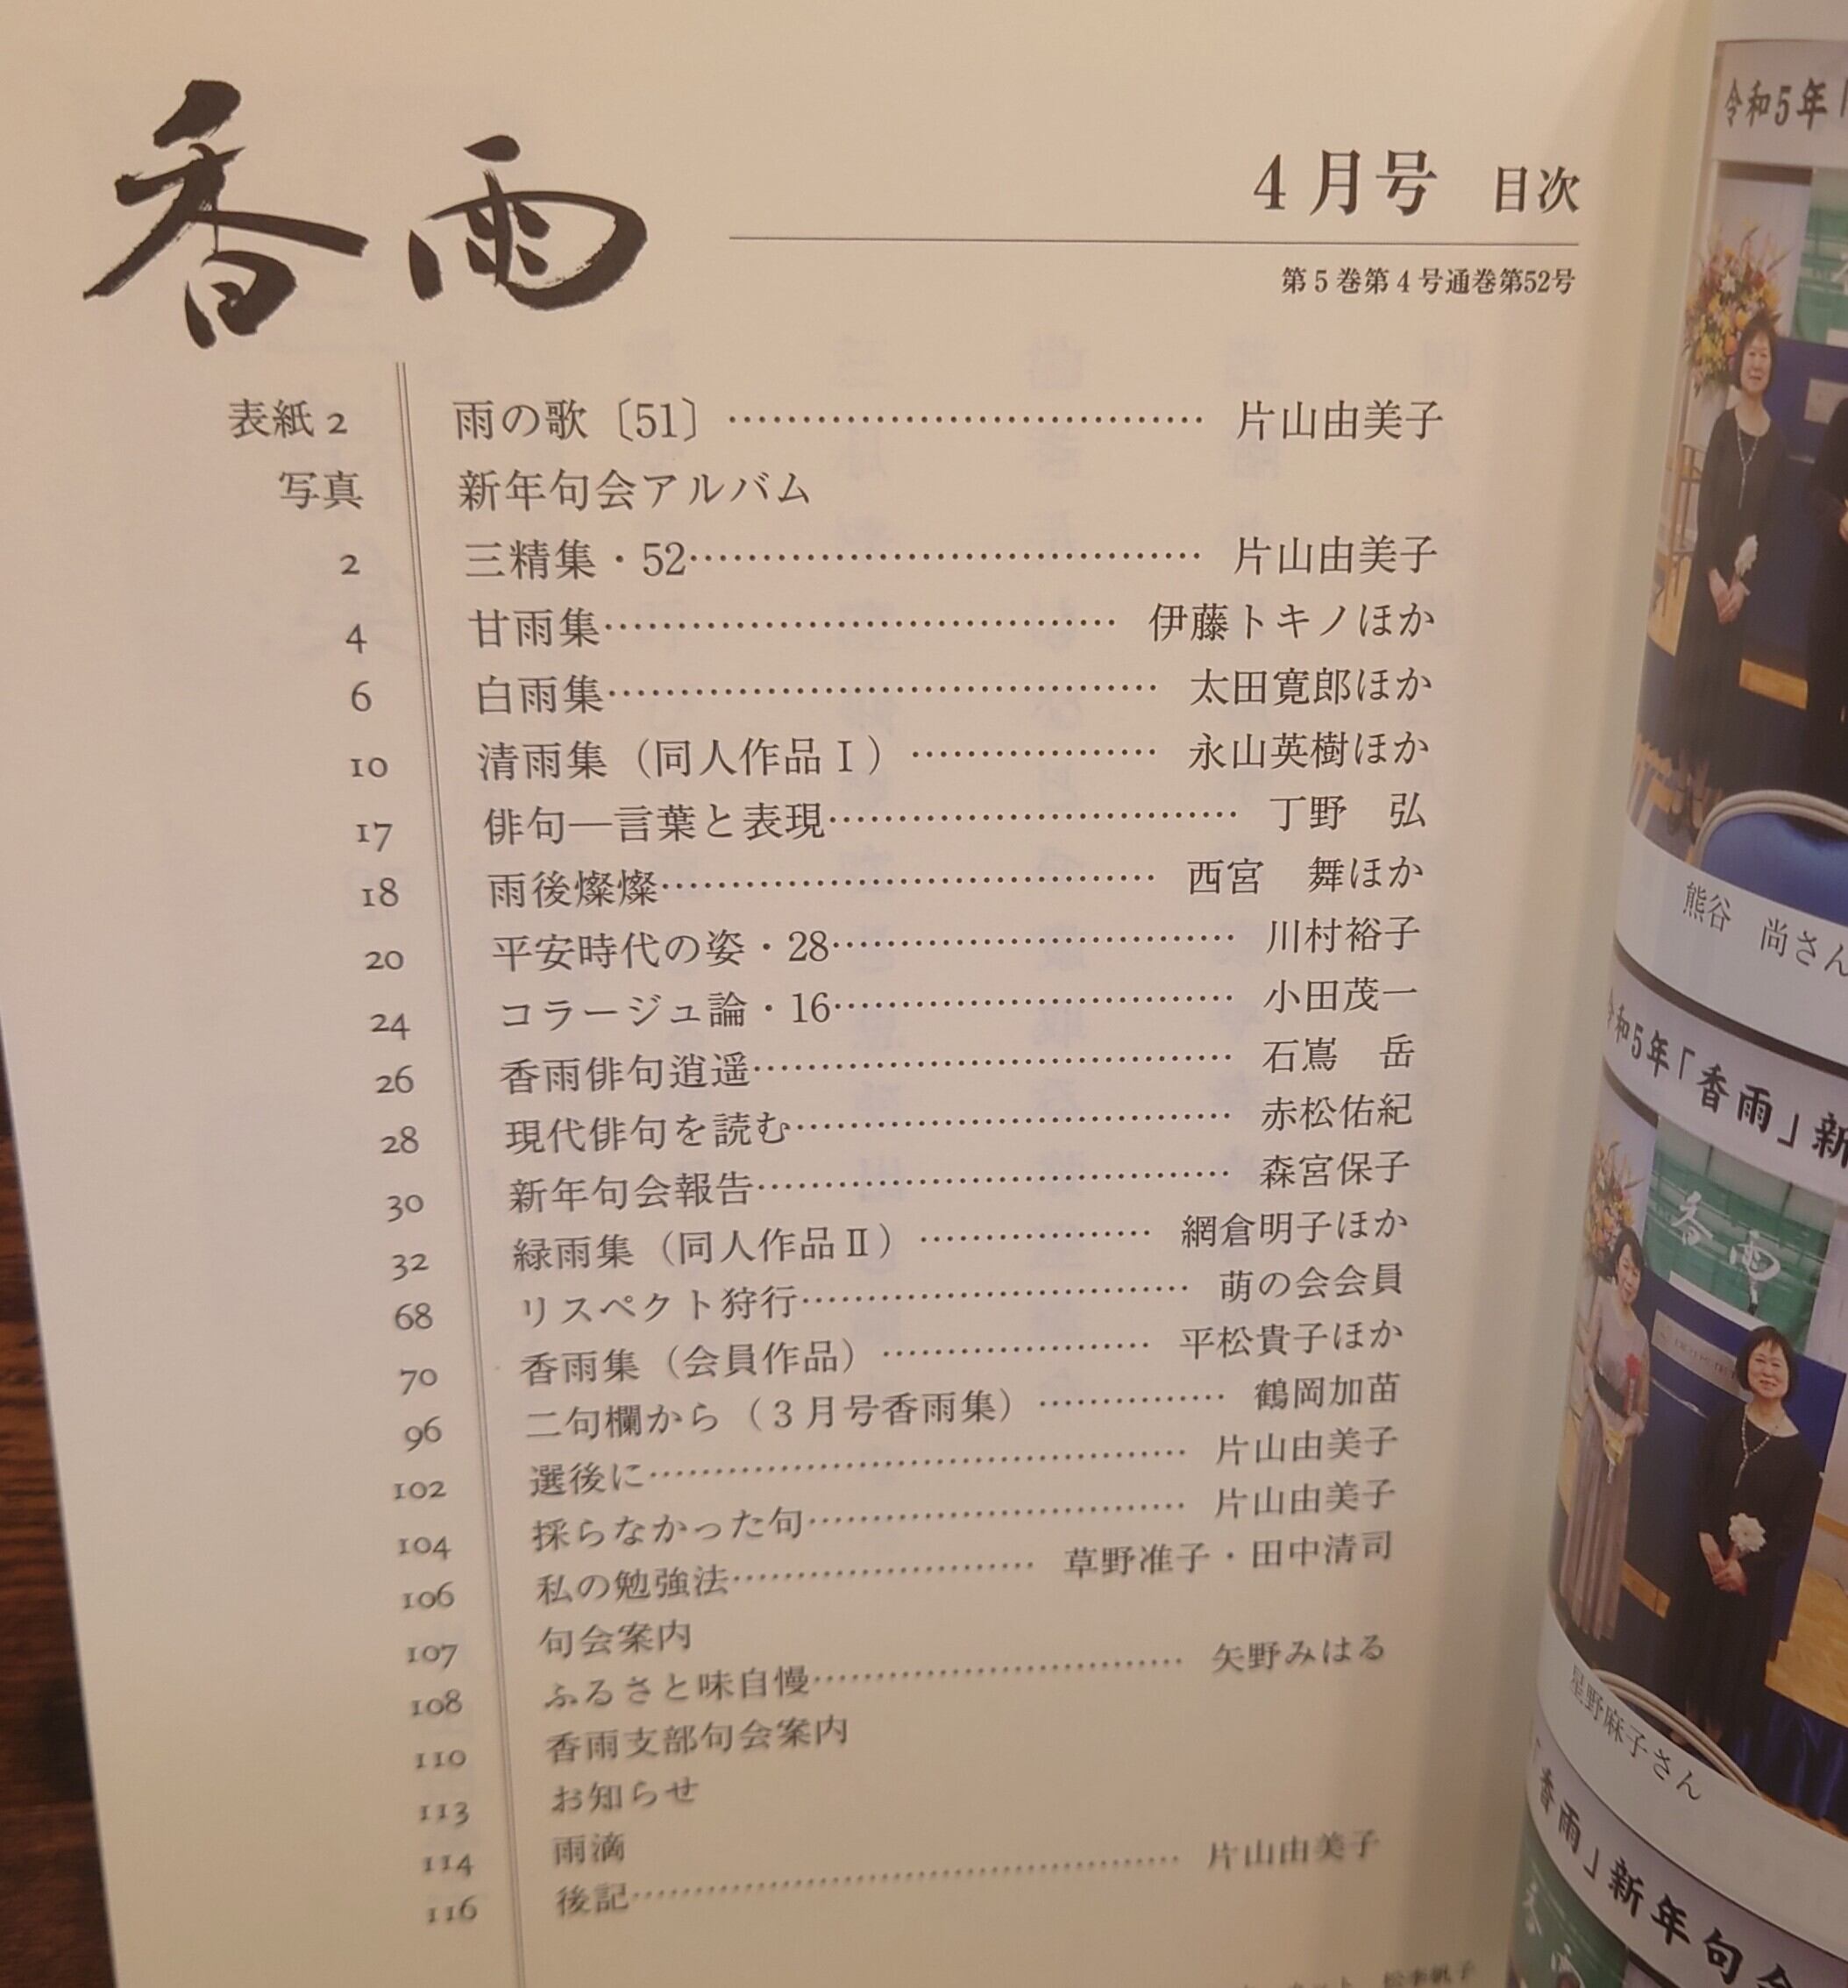 香雨
4月号 目次
第5巻第4号通巻第52号
表紙2 雨の歌〔51〕…………片山由美子
写真 新年句会アルバム
2 三精集・52…………片山由美子
4 甘雨集…………伊藤トキノほか
6 白雨集…………太田寛郎ほか
10 清雨集(同人作品Ⅰ)…………永山英樹ほか
17 俳句―言葉と表現…………丁野 弘
18 雨後燦燦…………西宮 舞ほか
20 平安時代の姿・28…………川村裕子
24 コラージュ論・16…………小田茂一
26 香雨俳句逍遥…………石嶌 岳
28 現代俳句を読む…………赤松佑紀
30 新年句会報告…………森宮保子
32 緑雨集(同人作品Ⅱ)…………網倉明子ほか
68 リスペクト狩行…………萌の会会員
70 香雨集(会員作品)…………平松貴子ほか
96 二句欄から(3月号香雨集)…………鶴岡加苗
102 選後に…………片山由美子
104 採らなかった句…………片山由美子
106 私の勉強法…………草野准子・田中清司
107 句会案内
108 ふるさと味自慢…………矢野みはる
110 香雨支部句会案内
113 お知らせ
114 雨滴
116 後記…………片山由美子
令和5年「
熊谷 尚さん
令和5年「香雨」新
香雨
星野麻子さん
「香雨」新年句会